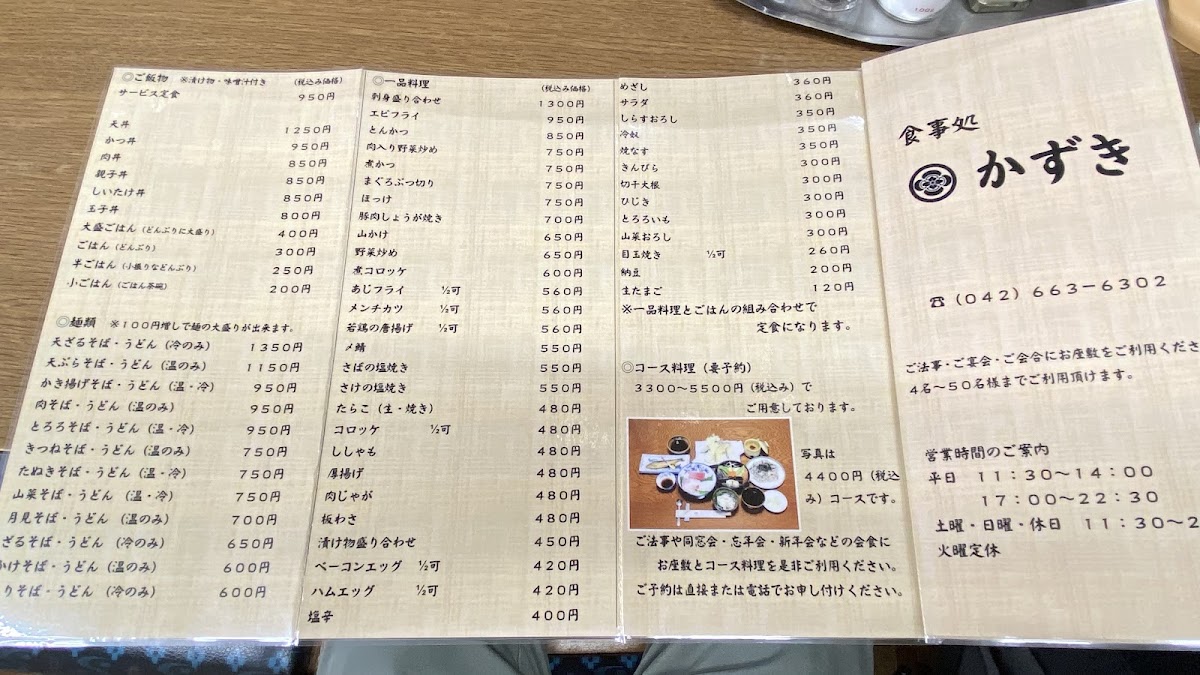 ◎ご飯物 ※漬け物・味噌汁付き (税込み価格)
サービス定食 950円
天丼 1250円
かつ丼 950円
肉丼 850円
親子丼 850円
しいたけ丼 850円
玉子丼 800円
大盛ごはん (どんぶりに大盛り) 400円
ごはん (どんぶり) 300円
半ごはん (小振りなどんぶり) 250円
小ごはん (ごはん茶碗) 200円
◎麺類 ※100円増しで麺の大盛りが出来ます。
天ざるそば・うどん (冷のみ) 1350円
天ぷらそば・うどん (温のみ) 1150円
かき揚げそば・うどん (温・冷) 950円
肉そば・うどん (温のみ) 950円
とろろそば・うどん (温・冷) 950円
きつねそば・うどん (温のみ) 750円
たぬきそば・うどん (温・冷) 750円
山菜そば・うどん (温・冷) 750円
月見そば・うどん (温のみ) 700円
ざるそば・うどん (冷のみ) 650円
かけそば・うどん (温のみ) 600円
りそば・うどん (冷のみ) 600円
◎一品料理 (税込み価格)
刺身盛り合わせ 1300円
エビフライ 950円
とんかつ 850円
肉入り野菜炒め 750円
煮かつ 750円
まぐろぶつ切り 750円
ほっけ 750円
豚肉しょうが焼き 700円
山かけ 650円
野菜炒め 650円
煮コロッケ 600円
あじフライ ½可 560円
メンチカツ ½可 560円
若鶏の唐揚げ ½可 560円
〆鯖 550円
さばの塩焼き 550円
さけの塩焼き 550円
たらこ (生・焼き) 480円
コロッケ ½可 480円
ししゃも 480円
厚揚げ 480円
肉じゃが 480円
板わさ 480円
漬け物盛り合わせ 450円
ベーコンエッグ ½可 420円
ハムエッグ ½可 420円
塩辛 400円
めざし 360円
サラダ 360円
しらすおろし 350円
冷奴 350円
焼なす 350円
きんぴら 300円
切干大根 300円
ひじき 300円
とろろいも 300円
山菜おろし 300円
目玉焼き ½可 260円
納豆 200円
生たまご 120円
※一品料理とごはんの組み合わせで
定食になります。
◎コース料理 (要予約)
3300～5500円 (税込み) で
ご用意しております。
写真は
4400円 (税込
み) コースです。
ご法事や同窓会・忘年会・新年会などの会食に
お座敷とコース料理を是非ご利用ください。
ご予約は直接または電話でお申し付けください。
食事処
かずき
☎ (042) 663-6302
ご法事・ご宴会・ご会合にお座敷をご利用くださ
4名～50名様までご利用頂けます。
営業時間のご案内
平日 11:30～14:00
17:00～22:30
土曜・日曜・休日 11:30～2
火曜定休